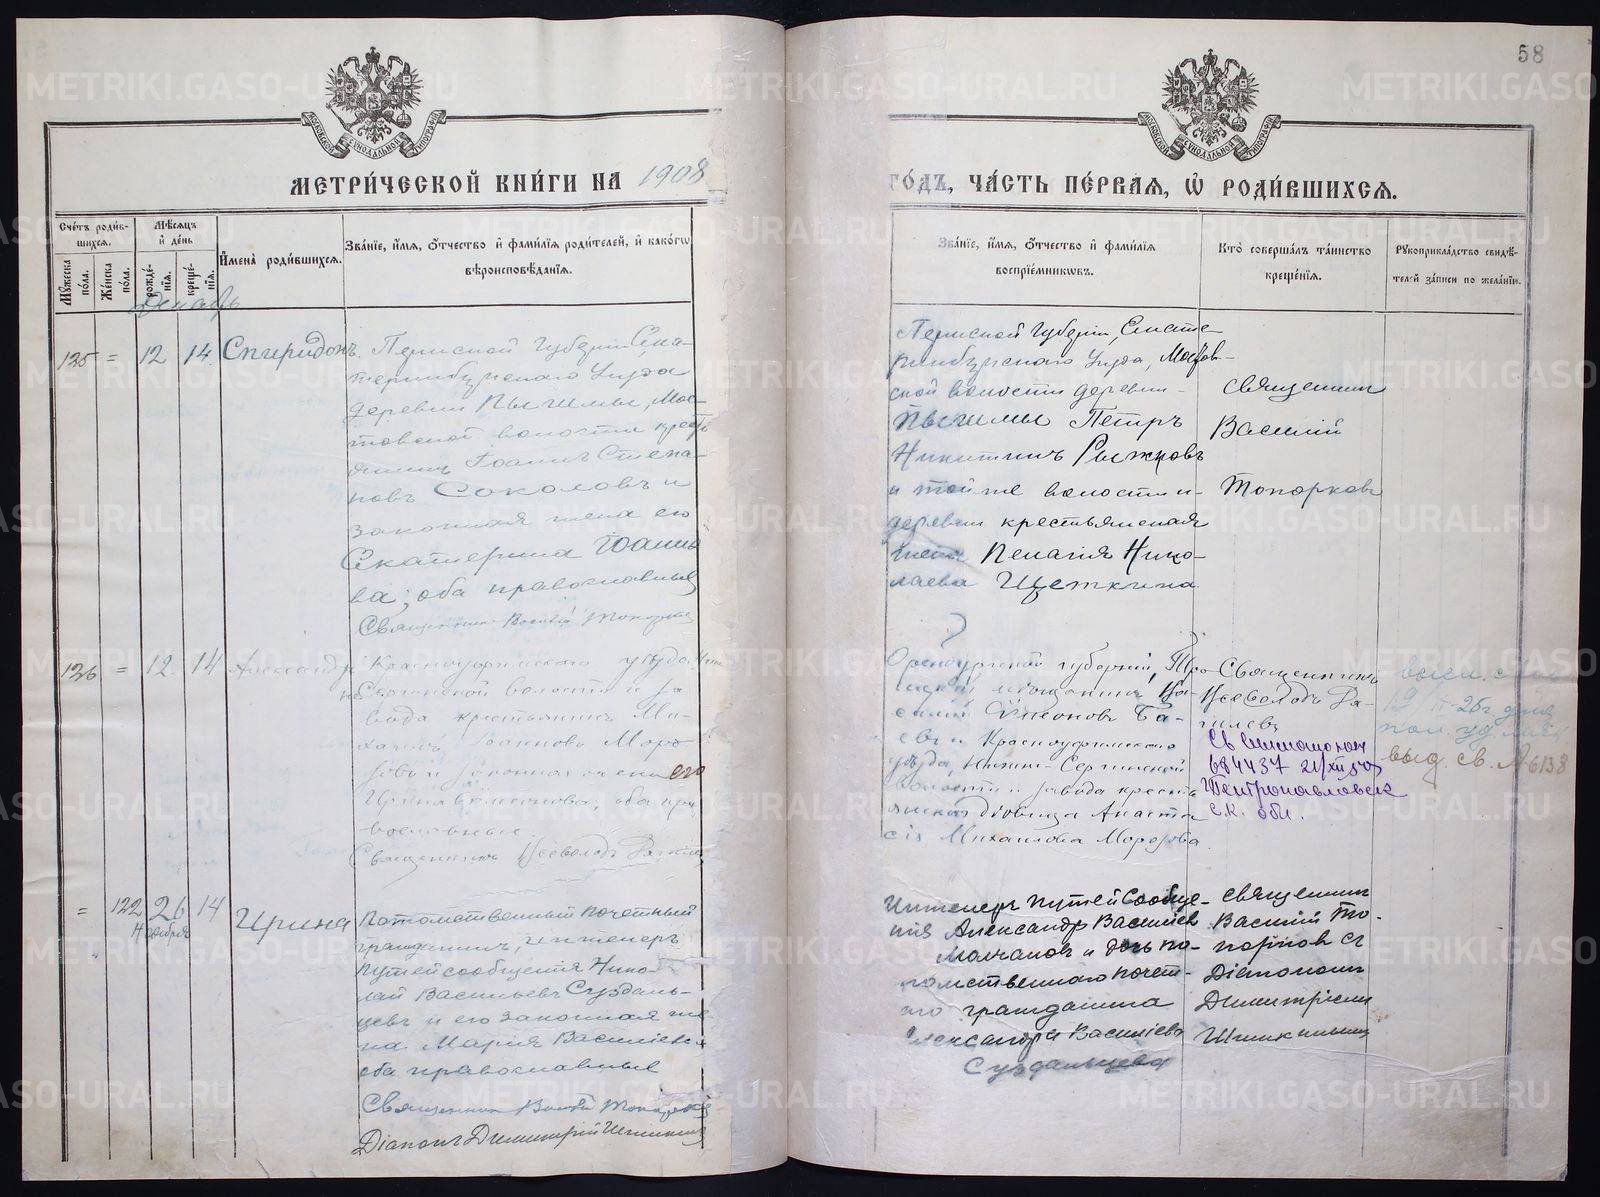 58
МЕТРИ́ЧЕСКОЙ КНИ́ГИ НА 1908
ГО́ДЪ, ЧА́СТЬ ПЕ́РВАЯ, Ѡ҆ РОДИ́ВШИХСЯ.
Сче́тъ роди́в-
шихся.
Мѣ́сяцъ
и҆ де́нь
Мꙋ́жеска по́ла.
Же́нска по́ла.
рожде́-
нїя.
креще́-
нїя.
И҆мена̀ роди́вшихся.
Зва́нїе, и҆́мя, ѻ҆́тчество и҆ фами́лїя роди́телей, и҆ како́гѡ
вѣроисповѣ́данїя.
Зва́нїе, и҆́мя, ѻ҆́тчество и҆ фами́лїя
воспрїе́мникѡвъ.
Кто̀ соверша́лъ та́инство
креще́нїя.
Рꙋкоприкла́дство свидѣ́-
телей за́писи по жела́нїю.
Декабрь
125 = 12 14 Спиридонъ
Пермской губернiи Ека-
теринбургскаго уѣзда
деревни Пышмы, Мос-
товской волости кресть
янинъ Iоаннъ Степа-
новъ Соколовъ и
законная жена его
Екатерина Iоанно
ва; оба православные
Священникъ Василiй Топорковъ
Пермской губернiи, Екате
ринбургскаго уѣзда, Мостов-
ской волости деревни
Пышмы Петръ
Никитинъ Рыжковъ
и той же волости и
деревни крестьянская
жена Пелагiя Нико-
лаева Щеткина
Священникъ
Василiй
Топорковъ
126 = 12 14 Александръ
Красноуфимскаго уѣзда, Ниж
не Сергинской волости и за
вода крестьянинъ Ми-
хаилъ Iоанновъ Моро
зовъ и законная жена его
Ирина Симеонова; оба пра
вославные.
Священникъ Всеволодъ
Оренбургской губернiи, Тро
ицкiй мѣщанинъ Ва-
силiй Симеоновъ Ба-
евъ и Красноуфимскаго
уѣзда, Нижне-Сергинской
волости и завода кресть
янская вдовица Анаста
сiя Михаилова Морозова.
Священникъ
Всеволодъ
684437
Петропавловск
С.К. обл.
выд. св. № 6138
= 122 26 14 Ирина
Ноября
Потомственный почетный
гражданинъ, инженеръ
путей сообщенiя Нико-
лай Васильевъ Суздаль-
цевъ и его законная же
на Марiя Васильева
оба православные
Священникъ Василiй Топорковъ
Дiаконъ Димитрiй Шишкинъ
Инженеръ путей Сообще-
нiя Александръ Васильевъ
Молчановъ и дочь по-
томственнаго почет-
наго гражданина
Александра Васильева
Суздальцева
Священникъ
Василiй То-
порковъ съ
Дiакономъ
Димитрiемъ
Шишкинымъ
METRIKI.GASO-URAL.RU